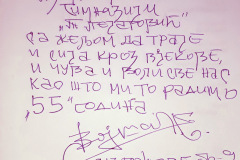 Гимназији
"Т. Пејатовић"
са жељом да траје
и сија кроз вјекове,
и чува и воли све нас
као што ми то радимо
"55" година